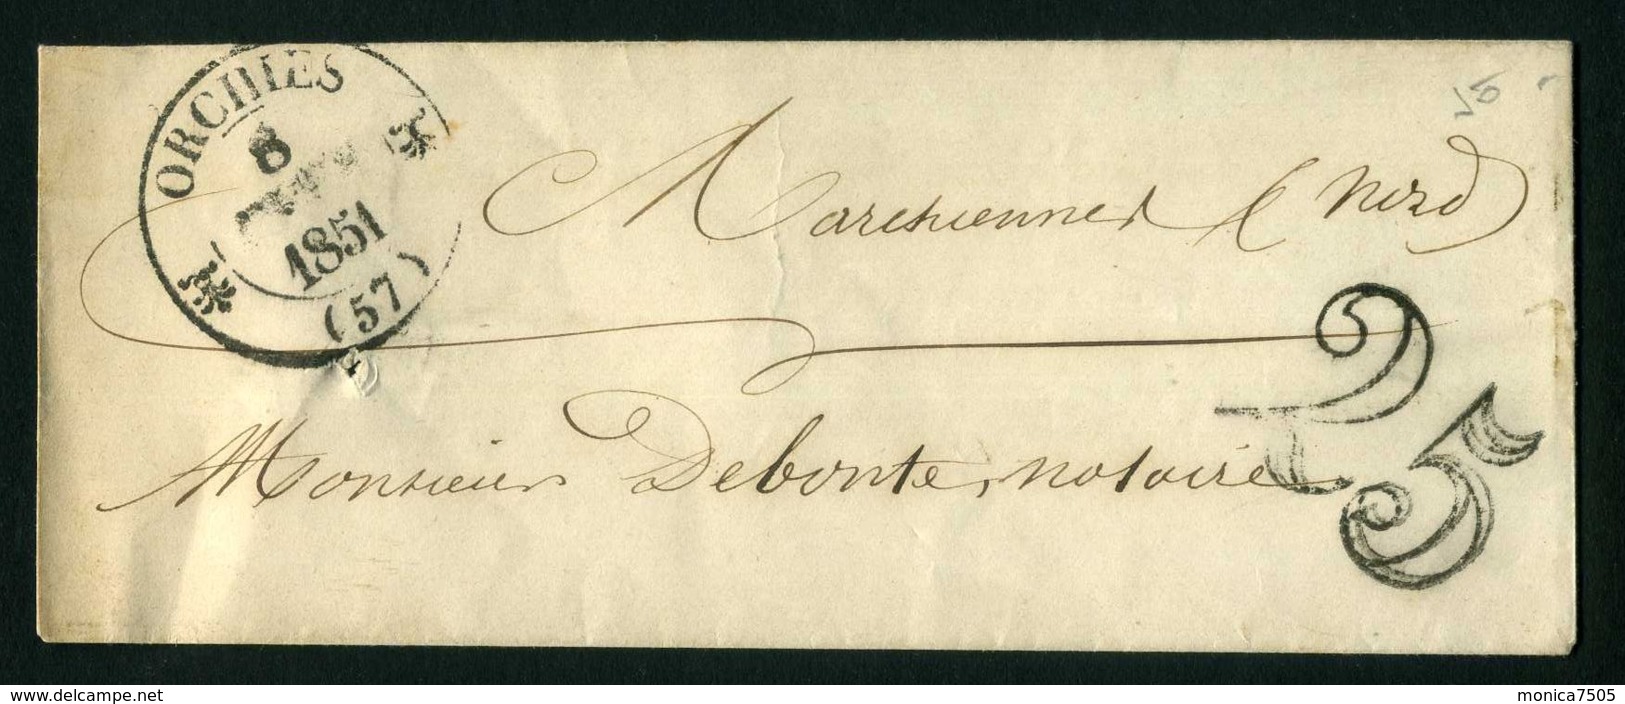 ORCHIES
8
1851
(57)
50
Marchiennes (Nord)
25
Monsieur Debonte, notaire
www.delcampe.net
monica7505